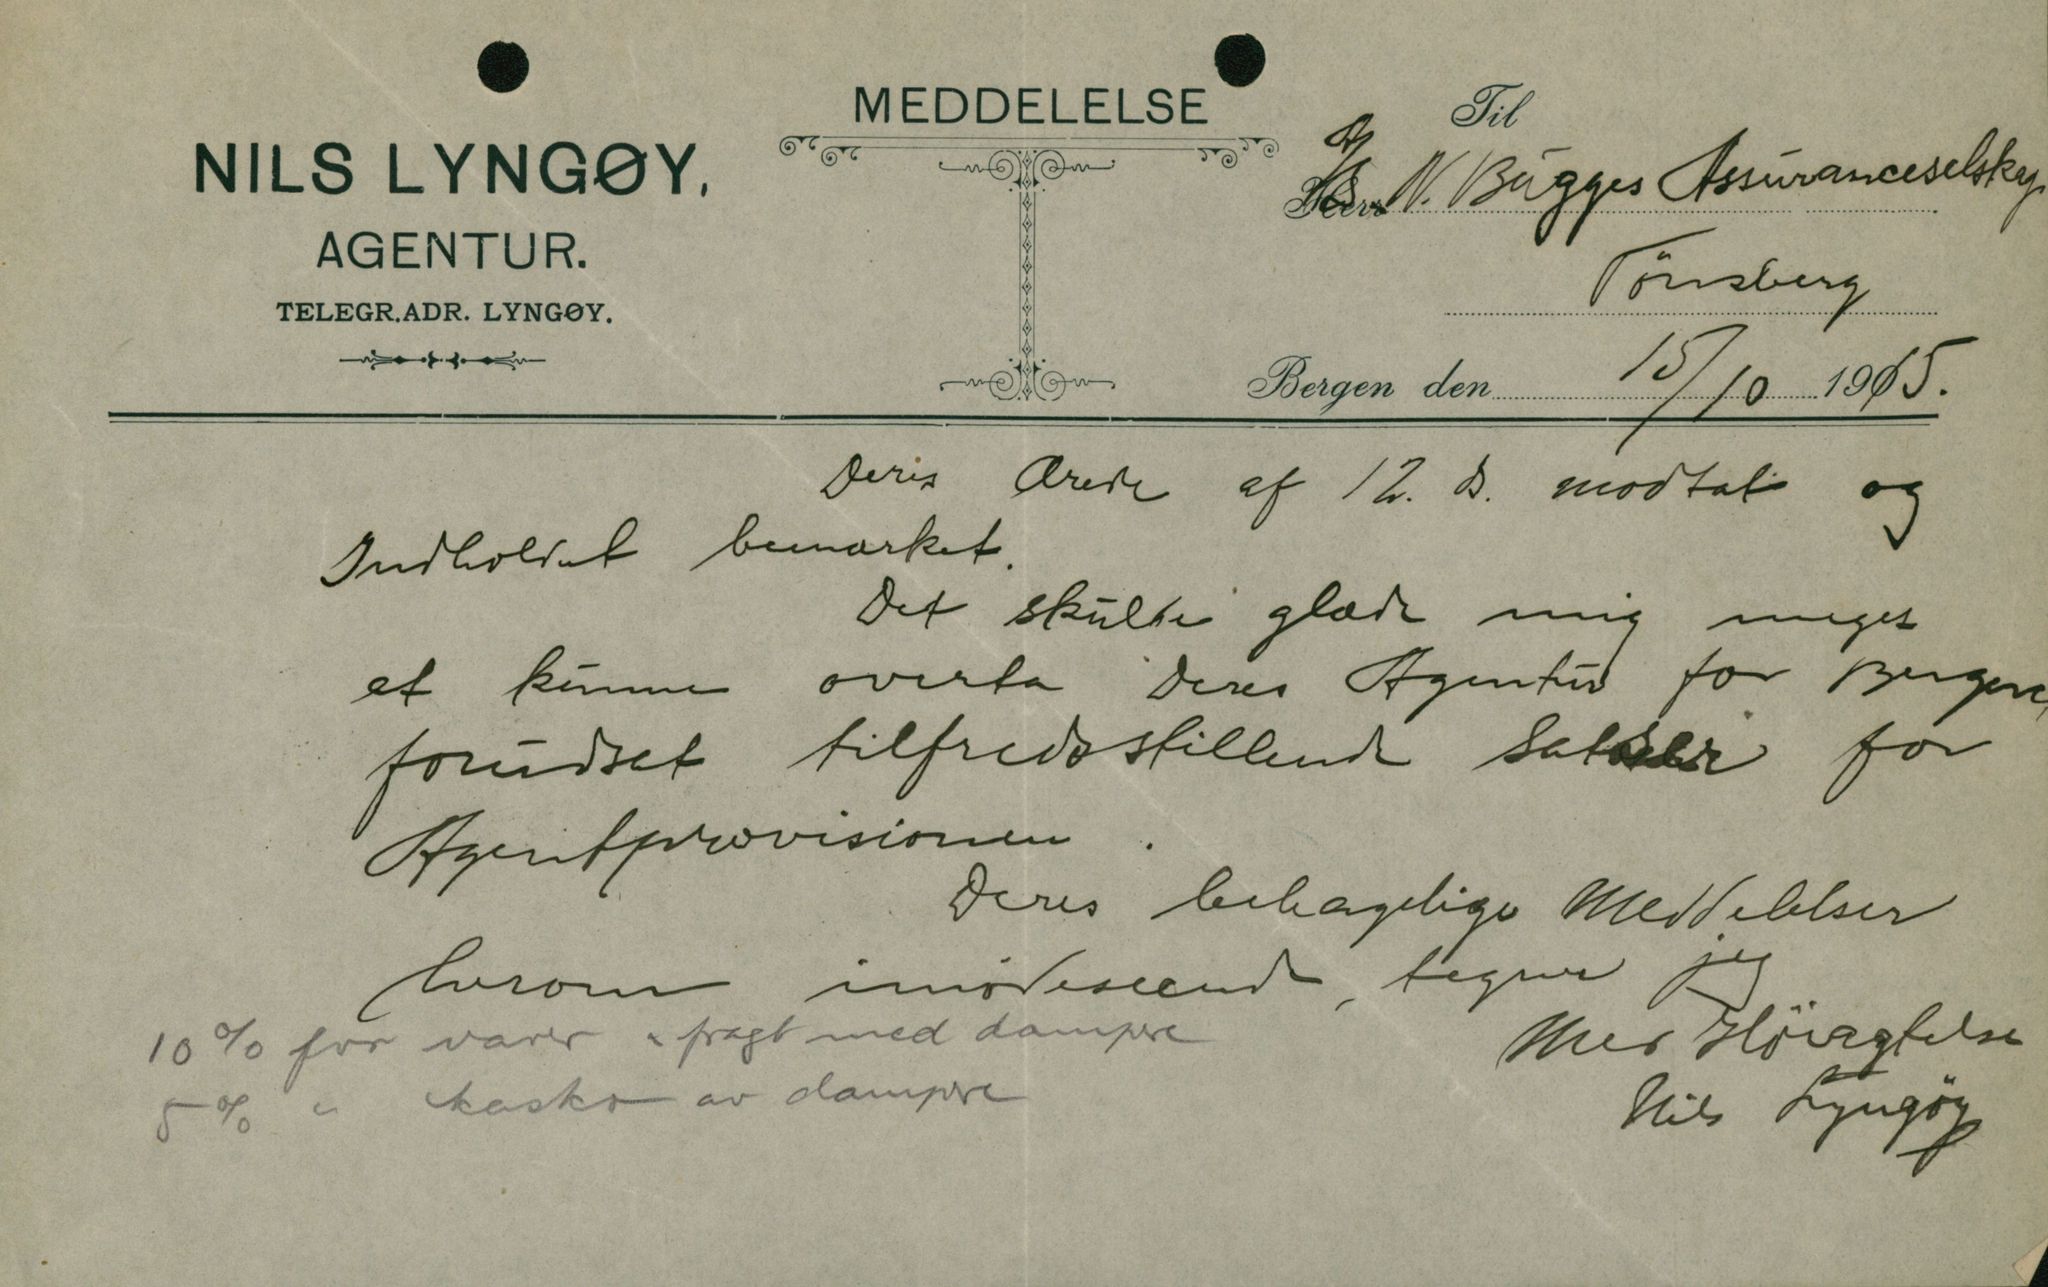 NILS LYNGØY.
AGENTUR.
TELEGR.ADR. LYNGØY.
MEDDELELSE
Til
Herr A/S N. Bugges Assuranceselskap
Tönsberg
Bergen den 15/10 1915.
Deres Ærede af 12. ds. modtat og
Indholdet bemærket.
Det skulde glæde mig meget
at kunne overta Deres Agentur for Bergen,
forudsat tilfredsstillende Satser for
Agentprovisionen.
Deres behagelige Meddelelser
herom imødeseende, tegner jeg
Med Höiagtelse
Nils Lyngöy
10 % for varer & fragt med dampere
5 % " kasko av dampere